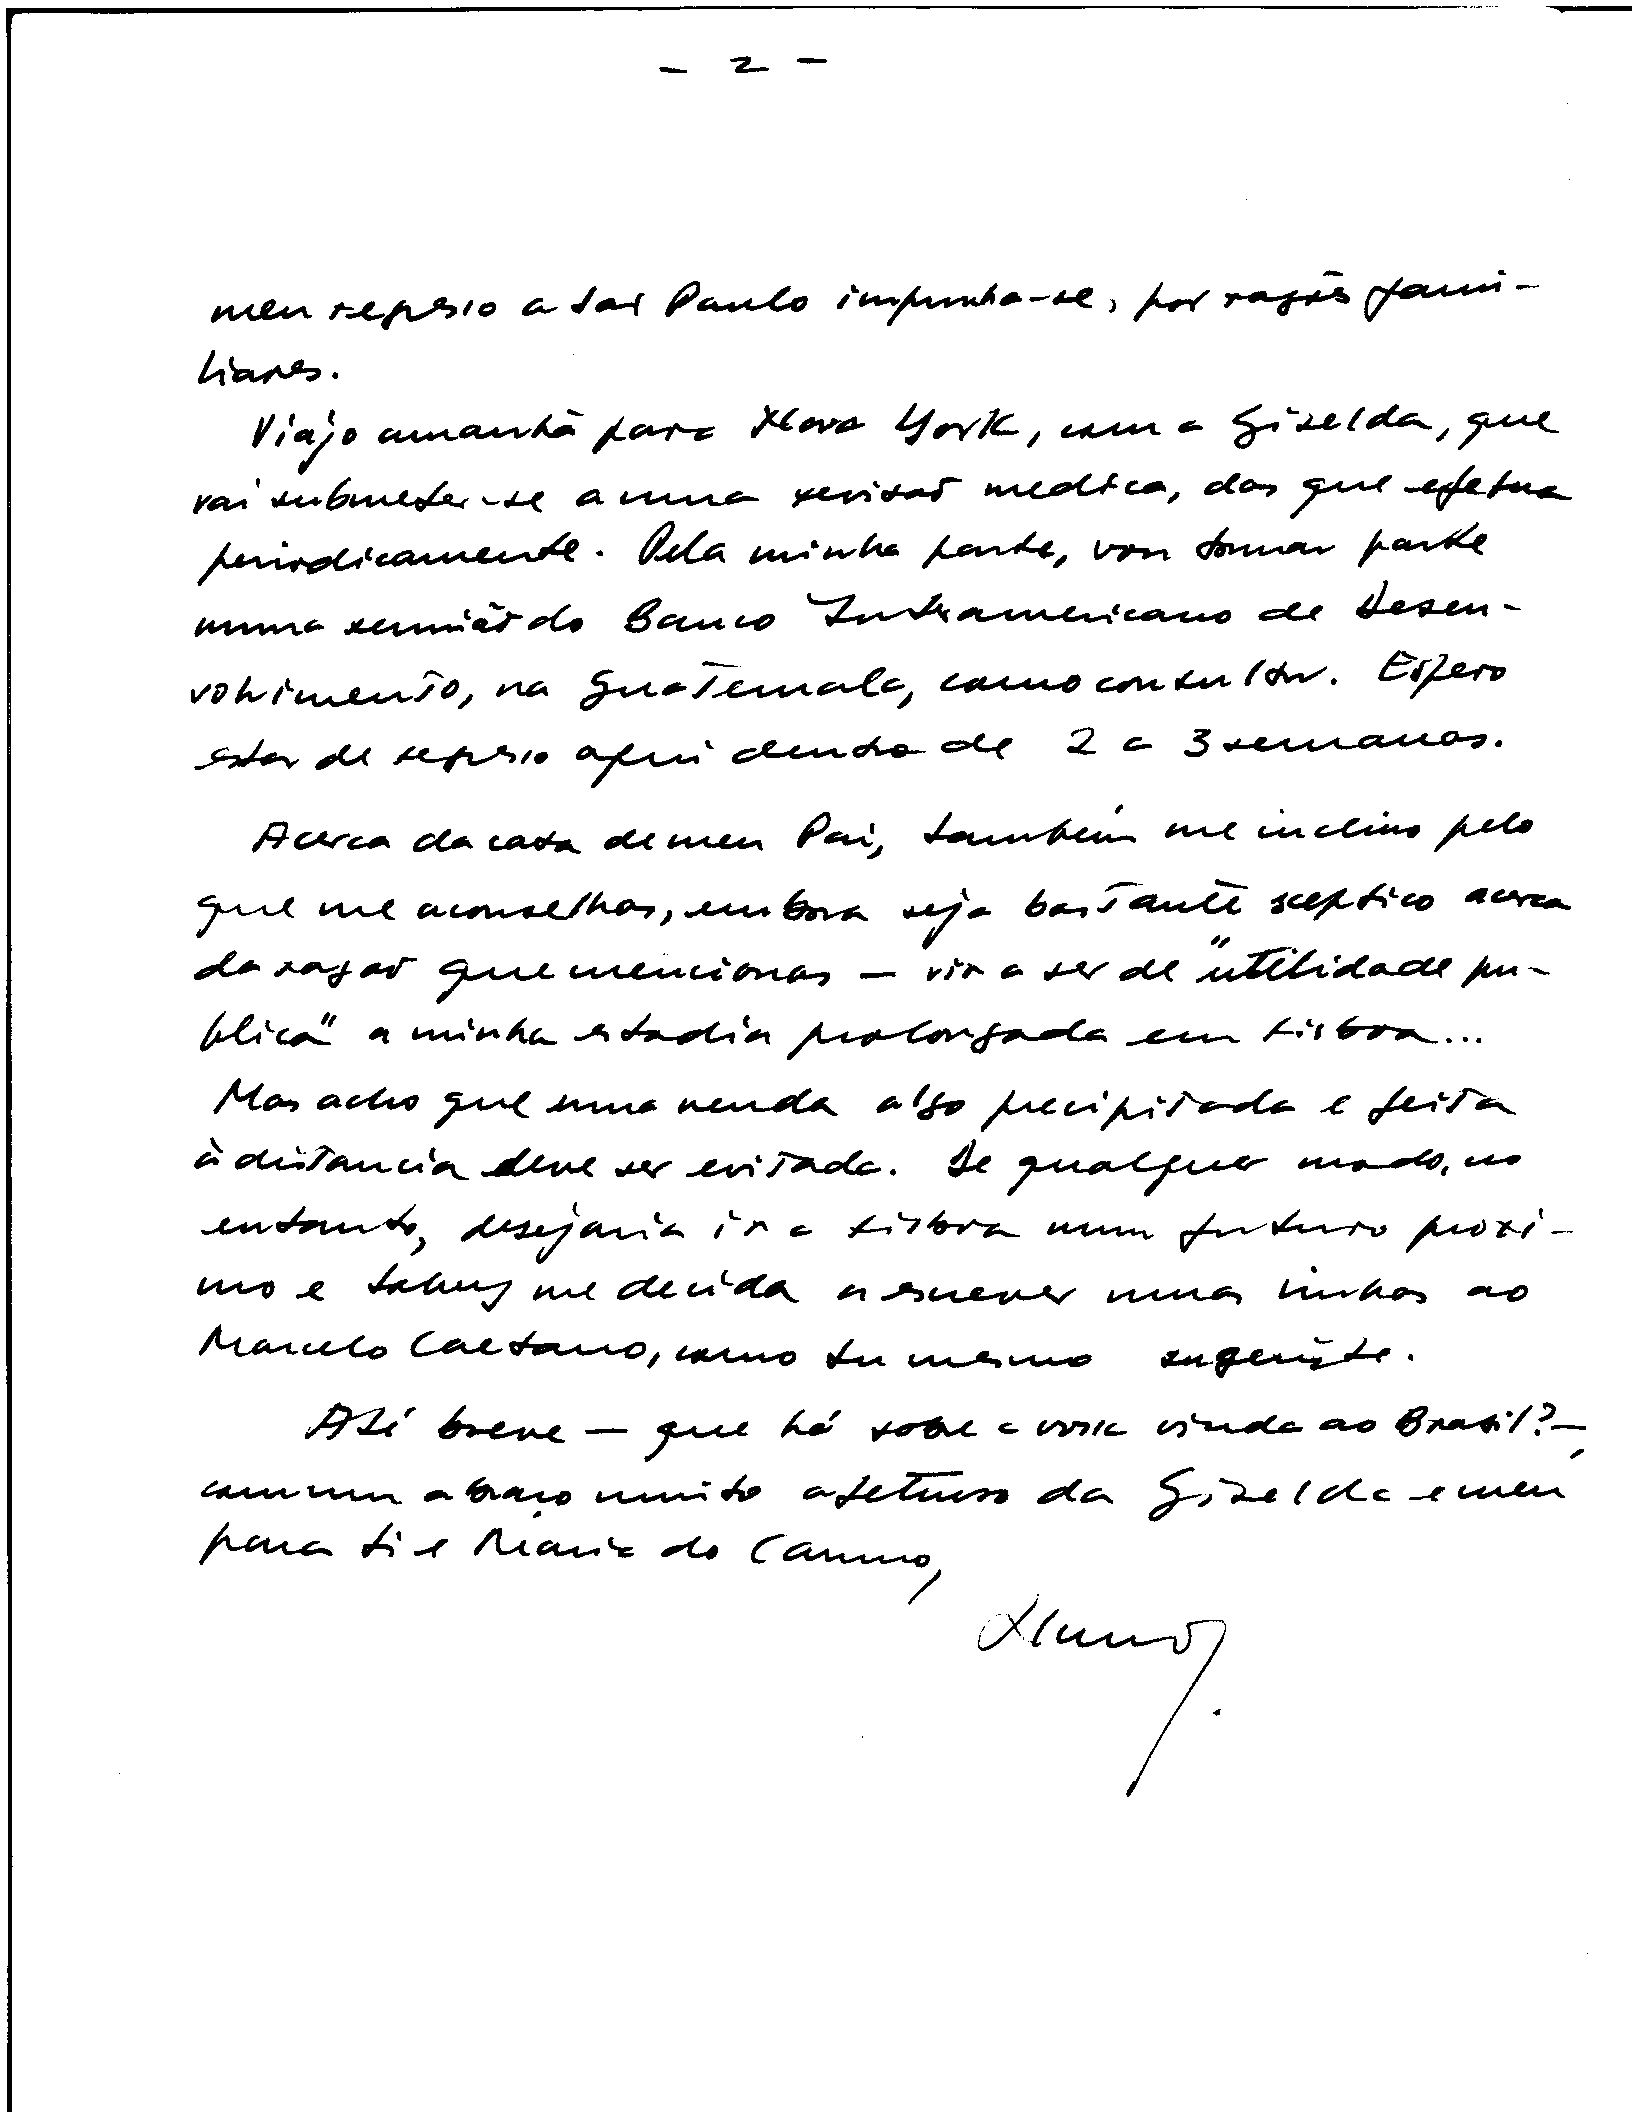 - 2 -
meu regresso a São Paulo impunha-se, por razões fami-
liares.
Viajo amanhã para Nova York, com a Giselda, que
vai submeter-se a uma revisão medica, das que efetua
periodicamente. Pela minha parte, vou tomar parte
numa reunião do Banco Interamericano de Desen-
volvimento, na Guatemala, como consultor. Espero
estar de regresso aqui dentro de 2 a 3 semanas.
Acerca da casa de meu Pai, também me inclino pelo
que me aconselhas, embora seja bastante sceptico acerca
da razão que mencionas — vir a ser de "utilidade pu-
blica" a minha estadia prolongada em Lisboa...
Mas acho que uma venda algo precipitada e feita
à distancia deve ser evitada. De qualquer modo, no
entanto, desejaria ir a Lisboa num futuro proxi-
mo e talvez me decida a escrever umas linhas ao
Marcelo Caetano, como tu mesmo sugeriste.
Até breve — que há sobre a vossa vinda ao Brasil? —,
com um abraço muito afetuoso da Giselda e meu
para ti e Maria do Carmo,
Nuno